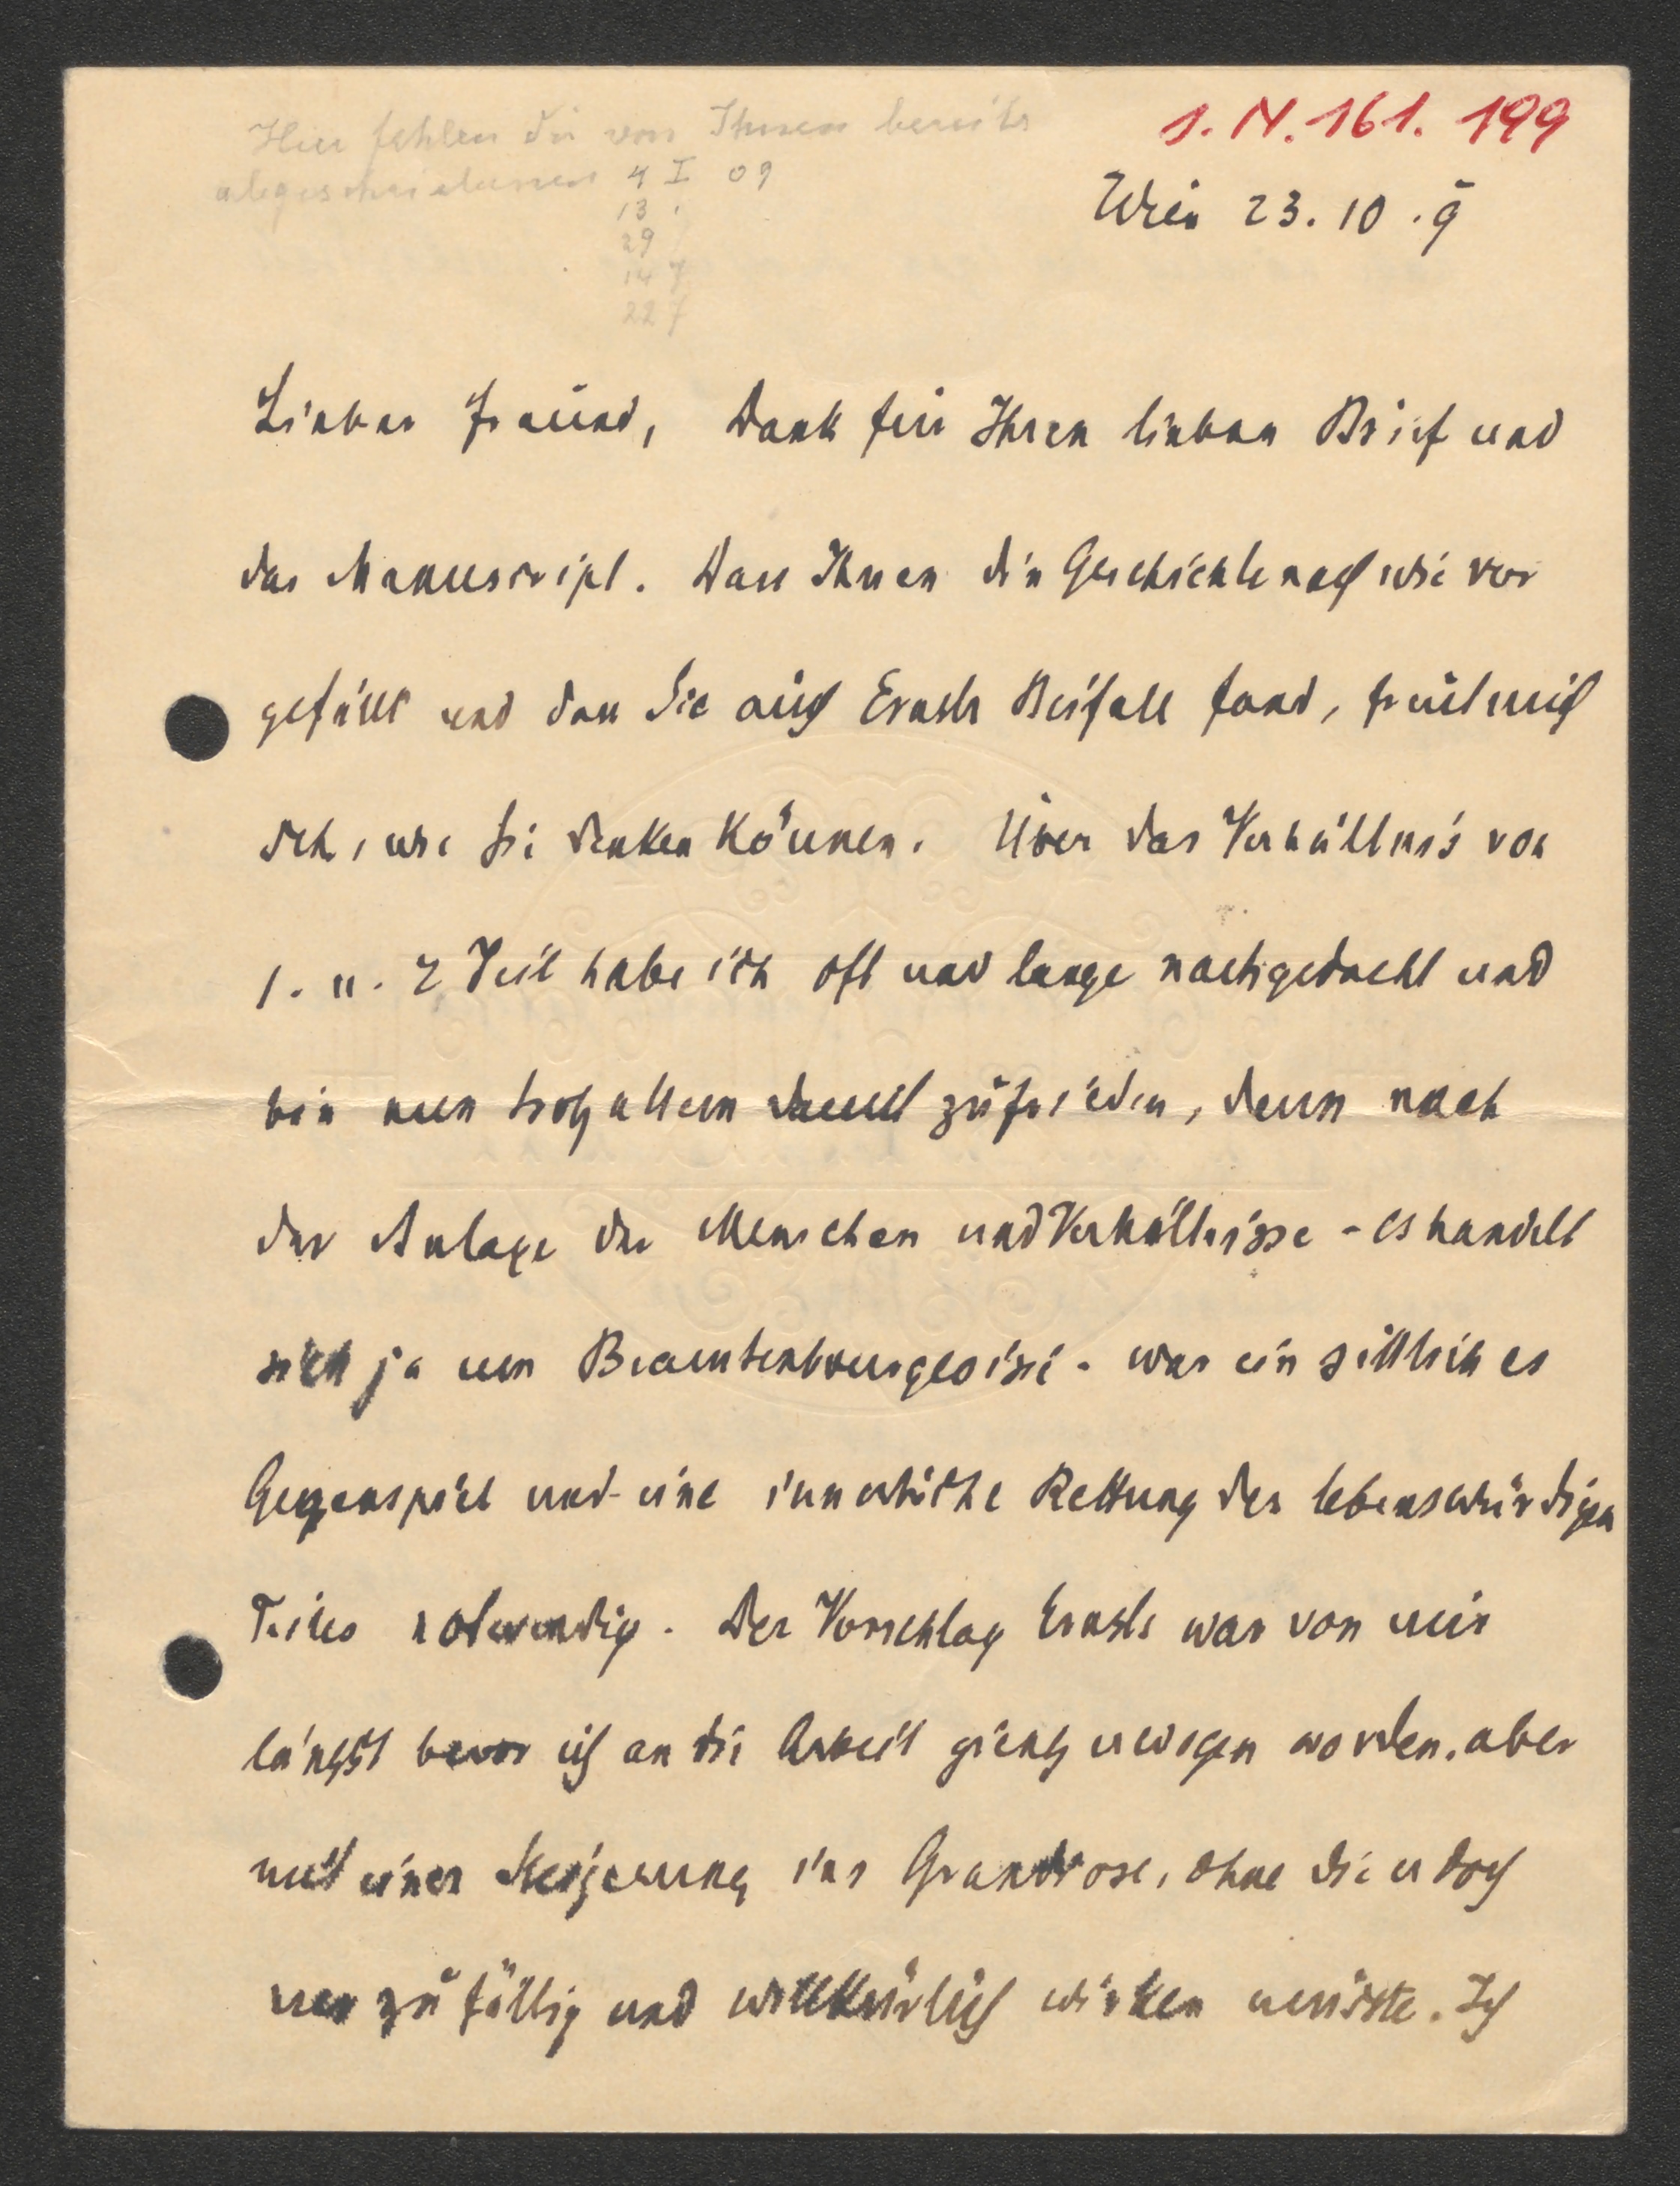 Hier fehlen die von Ihnen bereits
abgeschriebenen 4 I 09
13
29
14 7
22 7
I. N. 161. 199
Wien 23. 10. 9
Lieber Freund, Dank für Ihren lieben Brief und
das Manuscript. Dass Ihnen die Geschichte nach wie vor
gefällt und dass Sie auch Ernsts Beifall fand, freut mich
sehr, wie Sie denken können. Über das Verhältnis von
1. u. 2 Teil habe ich oft und lange nachgedacht und
bin nun trotz allem damit zufrieden, denn nach
der Anlage der Menschen und Verhältnisse - es handelt
sich ja um Beamtenbourgeoisie - war ein sittliches
Gegenspiel und eine innerliche Rettung des lebenswürdigen
Teiles notwendig. Der Vorschlag Ernsts war von mir
längst bevor ich an die Arbeit gieng erwogen worden, aber
mit einer Steigerung ins Grandiose, ohne die er doch
nur zufällig und willkürlich wirken müsste. Ich